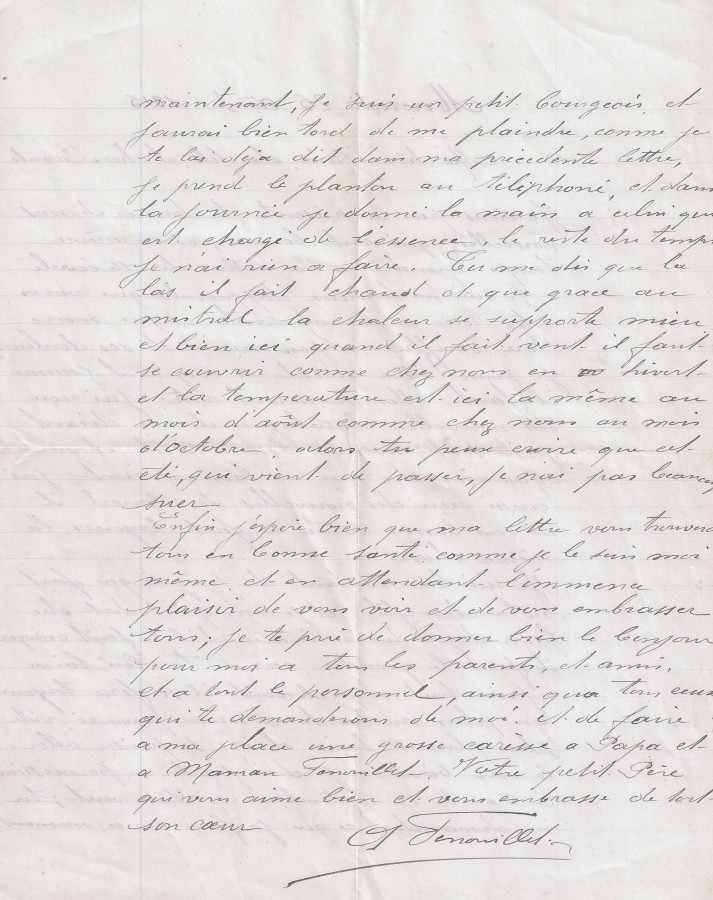 maintenant, je suis un petit bourgeois et
jaurai bien tord de me plaindre, comme je
te lai déja dit dans ma précedente lettre,
je prend le planton au téléphone, et dans
la journée je donne la main a celui qui
est chargé de l'éssence, le reste du temps
je n'ai rien a faire. Tu me dis que la
bas il fait chaud et que grace au
mistral la chaleur se supporte mieu
et bien ici quand il fait vent il faut
se couvrir comme chez nous en hivert
et la température est ici la même au
mois d'août comme chez nous au mois
d'octobre, alors tu peux croire que cet
été, qui vient de passer, je nai pas beaucoup
suer
Enfin j'éspère bien que ma lettre vous trouvera
tous en bonne santé comme je le suis moi
même et en attendant l'immence
plaisir de vous voir et de vous embrasser
tous; je te prie de donner bien le bonjour
pour moi a tous les parents, et amis,
et a tout le personnel, ainsi qua tous ceux
qui te demanderons de moi et de faire
a ma place une grosse carèsse a Papa et
a Maman Fenouillet. Votre petit Père
qui vous aime bien et vous embrasse de tout
son cœur
Fenouillet